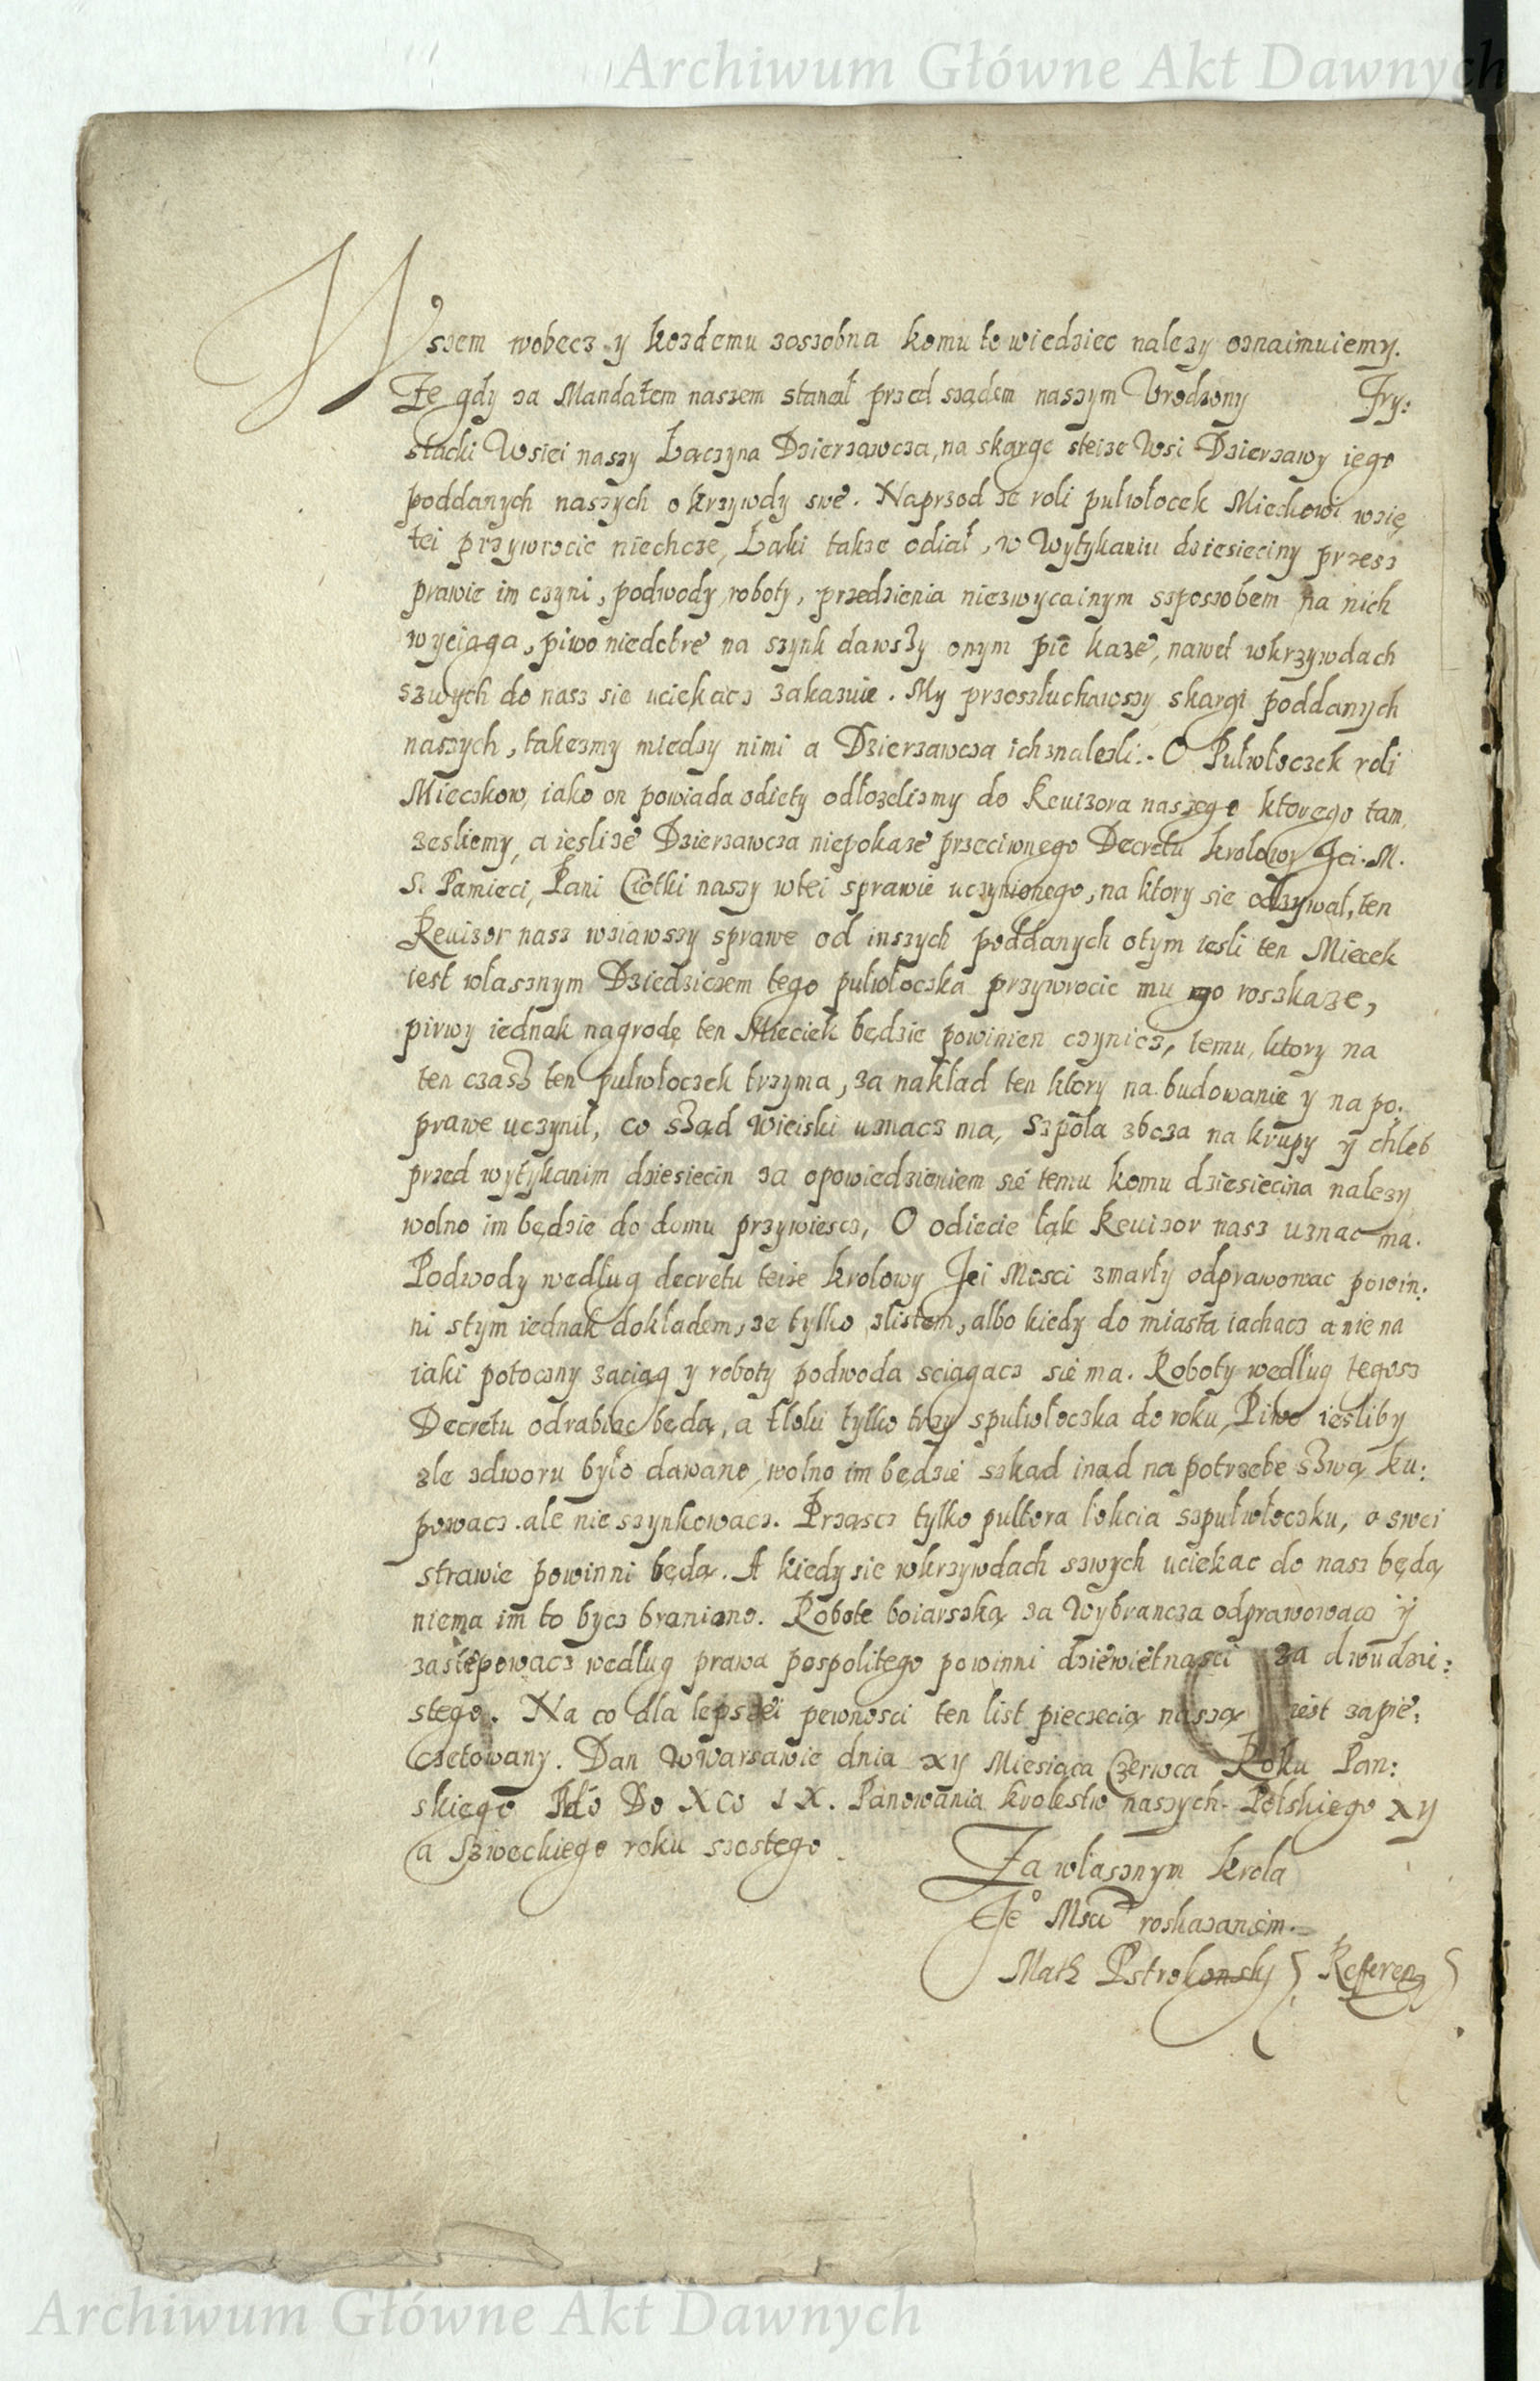 Archiwum Główne Akt Dawnych
Wszem wobecz y kozdemu zoszobna komu to wiedziec nalezy oznaimuiemy.
Ze gdy za Mandatem naszem stanał przed sządem naszym Vrodzony Try:
stacki Wsiei naszy Łaczyna Dzierzawcza, na skargę steize Wsi Dzierzawy iego
poddanych naszych o krzywdy swe. Naprzod ze roli pułwłocek Mieckowi wzię
tei przywrocic niechcze, Łąki takze odiał, w Wytykaniu dziesieciny przesz
prawie im czyni, podwody, roboty, przedzienia niezwycainym szposzobem na nich
wyciąga, piwo niedobre na szynk dawszy onym pic kaze, nawet wkrzywdach
szwych do nasz sie uciekacz zakazuie. My przeszłuchawszy skargi poddanych
naszych, takezmy miedzy nimi a Dzierzawcza ich znalezli. O Pułwłoczek roli
Mieczkow, iako on powiada odięty odłozelismy do Reuizora naszego ktorego tam
zesliemy, a iesliże Dzierzawcza niepokaze przeciwnego Decretu krolowy Jei. M.
S. Pamieci, Pani Ciotki naszy wtei sprawie uczynionego, na ktory sie odzywał, ten
Reuizor nasz wziawszy sprawe od inszych poddanych otym iesli ten Miecek
iest własznym Dziedziczem tego pułwłoczka przywrocic mu go roszkaze,
pirwy iednak nagrodę ten Mieciek będzie powinien czynicz, temu, ktory na
ten czasz ten pułwłoczek trzyma, za nakład ten ktory na budowanie y na po:
prawe uczynił, co sząd Wieiski uznacz ma, Szpola zboza na krupy y chleb
przed wytykanim dziesiecin za opowiedzieniem sie temu komu dziesiecina nalezy
wolno im będzie do domu przywiescz, O odiecie łąk Reuizor nasz uznac ma.
Podwody według decretu teize krolowy Jei Mosci zmarły odprawowac powin:
ni stym iednak dokładem, ze tylko zlistem, albo kiedy do miasta iachacz a nie na
iaki potoczny zaciąg y roboty podwoda sciągacz sie ma. Roboty według tegosz
Decretu odrabiac będą, a tłoki tylko trzy spułwłoczka do roku, Piwo iesliby
złe zdworu było dawano, wolno im będzie szkąd inąd na potrzebe szwą ku:
powacz ale nie szynkowacz. Prząscz tylko pułtora łokcia szpułwłoczku, o swei
strawie powinni będą. A kiedy sie wkrzywdach szwych uciekac do nasz będą
niema im to bycz braniano. Robote boiarszką za Wybrancza odprawowacz y
zastępowacz według prawa pospolitego powinni dziewiętnasci za dwudzie:
stego. Na co dla lepszei pewnosci ten list pieczecią naszą iest zapie:
czetowany. Dan wWarszawie dnia xy Miesiąca Czerwca Roku Pan:
skiego Do XCo IX. Panowania krolestw naszych Polskiego xy
a Szweckiego roku szostego.
Za własznym krola
Je° Msci roskazaniem.
Math Pstrokonsky Referen
Archiwum Główne Akt Dawnych